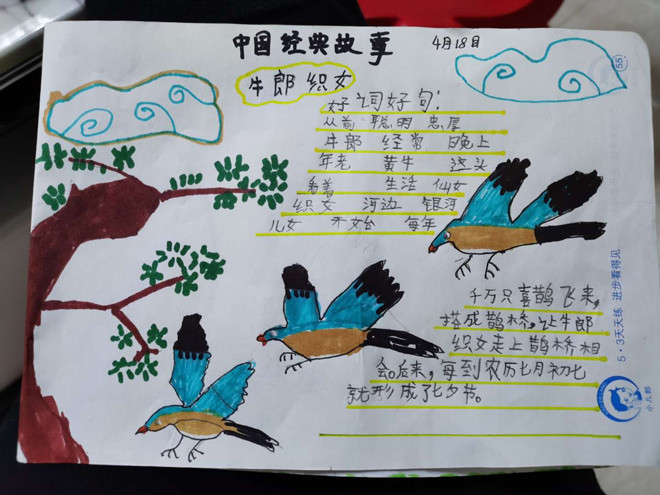 中国经典故事
4月18日
牛郎织女
好词好句:
从前 聪明 忠厚
牛郎 经常 晚上
年老 黄牛 这头
看着 生活 仙女
织女 河边 银河
儿女 开始 每年
千万只喜鹊飞来,
搭成鹊桥,让牛郎
织女走上鹊桥相
会。后来,每到农历七月初七
就形成了七夕节。
55
5·3天天练 进步看得见
小儿郎